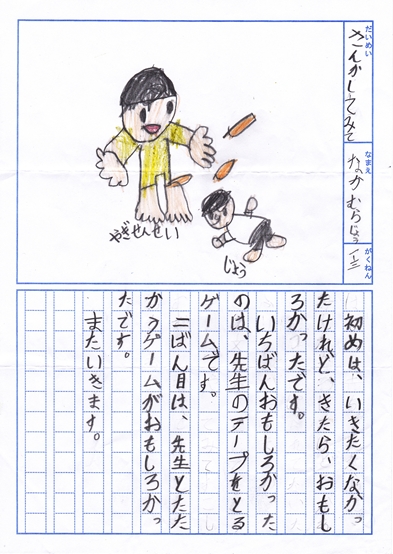 だいめい
さんかしてみて
なまえ
なかむらじょう
がくねん
一年
やぎせんせい
じょう
初めは、いきたくなかっ
たけれど、きたら、おもし
ろかったです。
いちばんおもしろかった
のは、先生のテープをとる
ゲームです。
二ばん目は、先生とたた
かうゲームがおもしろかっ
たです。
またいきます。